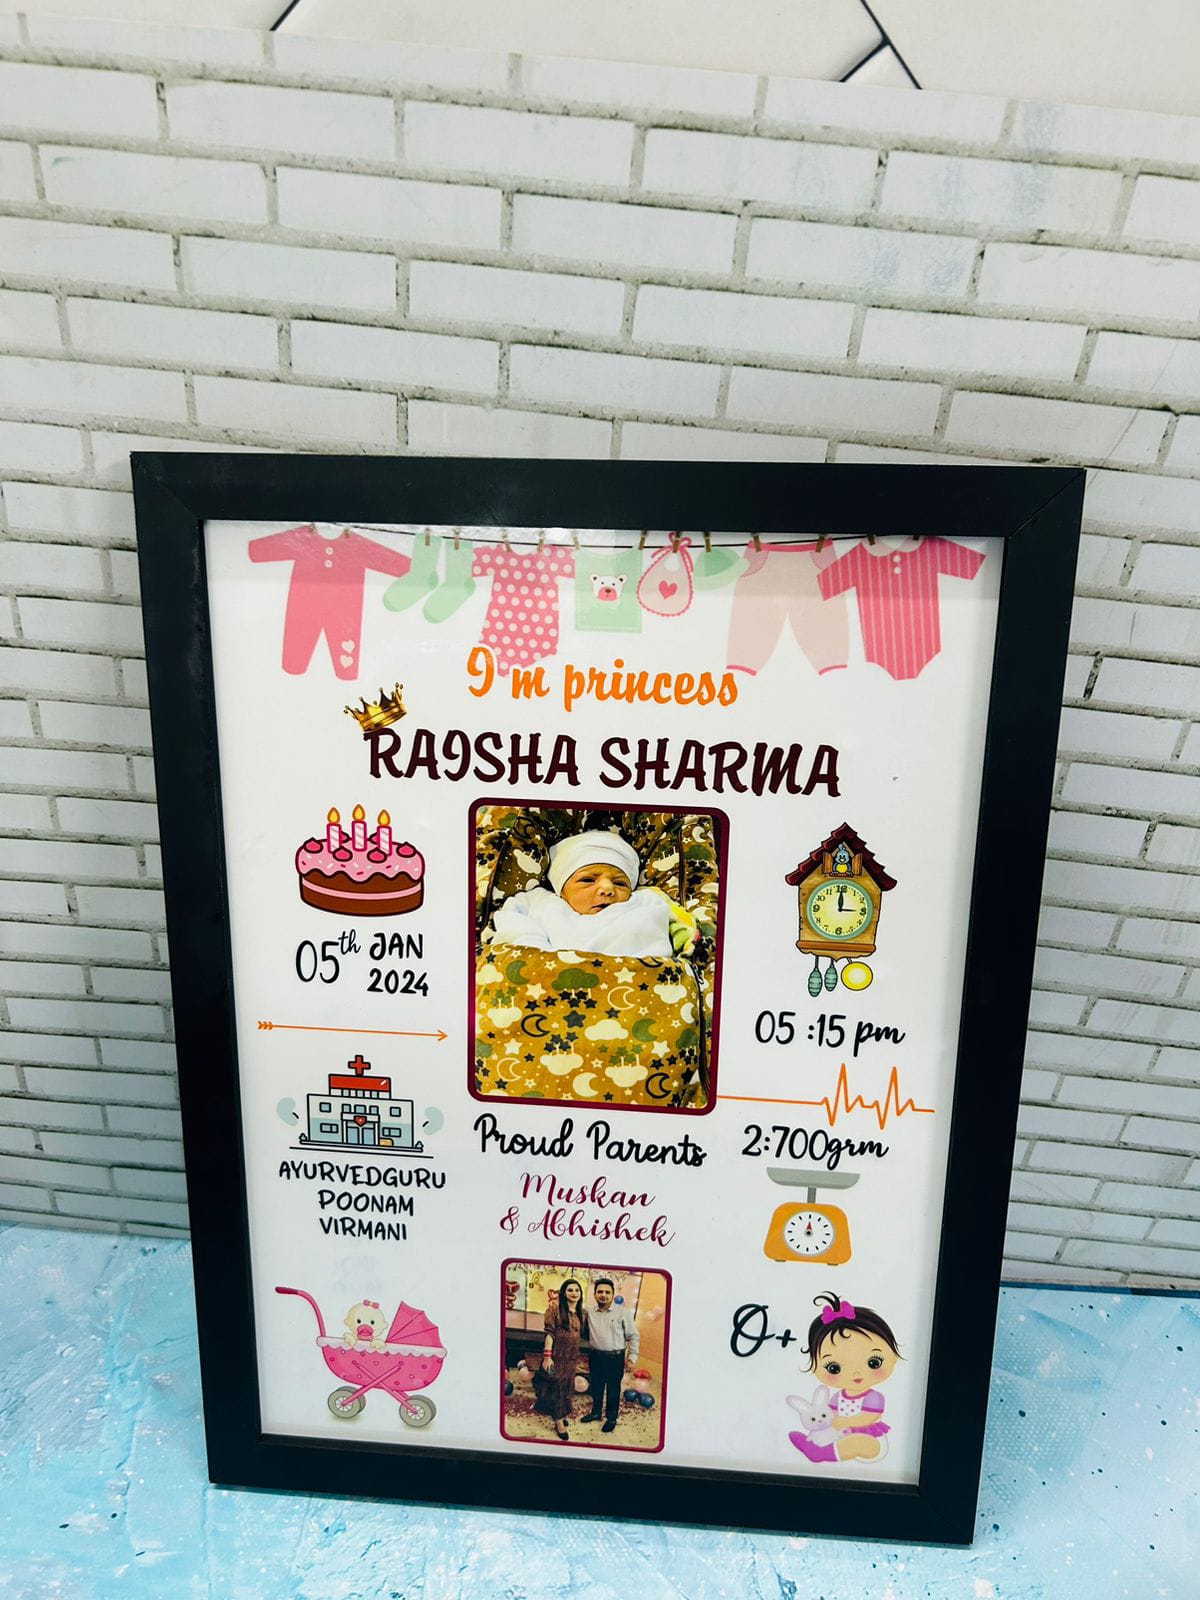 I'm princess
RAISHA SHARMA
05th JAN
2024
05:15 pm
AYURVEDGURU
POONAM
VIRMANI
Proud Parents
Muskan
& Abhishek
2:700grm
O+